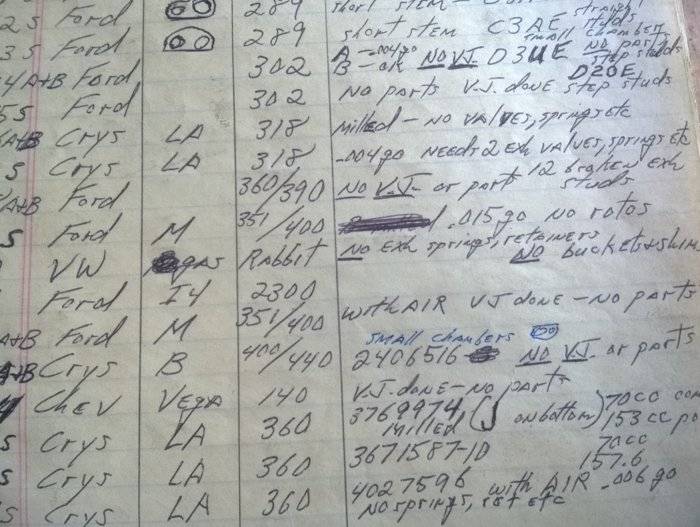 2S Ford 289 short stem - straight studs
3S Ford 289 short stem C3AE small chambers
4A+B Ford 302 A - .004 go NO VJ D3UE NO parts
B - ok step studs
5S Ford 302 No parts V.J. done step studs D20E
A+B Crys LA 318 Milled - NO VALVES, springs etc
S Crys LA 318 .004 go NEEDS 2 Exh VALVES, springs etc
A+B Ford 360/390 NO V.J. or parts 12 broken exh studs
S Ford M 351/400 .015 go NO rotos
VW gas Rabbit NO Exh springs, retainers NO buckets + shim
Ford I4 2300
A+B Ford M 351/400 with AIR VJ done - NO parts
A+B Crys B 400/440 small chambers 2406516 NO VJ. or parts
Chev Vega 140 V.J. done - NO parts
S Crys LA 360 3769974 (J on bottom) 70cc com
Milled 153cc po
S Crys LA 360 3671587-10 70cc
157.6
S Crys LA 360 4027596 with AIR .006 go
No springs, ret etc